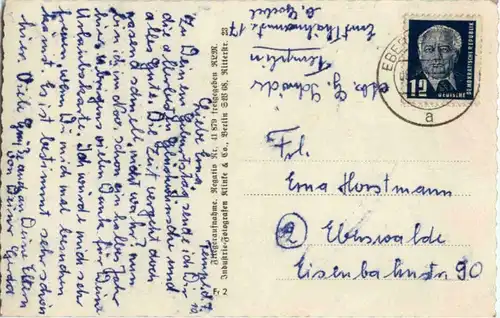 Liebe Erna,
Zu Deinem Geburtstage sende ich Dir
die allerbesten Glückwünsche und
alles gute. Die Zeit vergeht doch
rasend schnell, nicht wahr? Nun
bin ich im das schon ein halbes Jahr
hier. Übrigens vielen Dank für Deine
Urlaubskarte. Ich würde mich sehr
freuen, wenn Du mich mal besuchen
kannst. Es ist bestimmt sehr schön
hier. Viele Grüße auch an Deine Eltern
von Deiner
Fliegeraufnahme. Negativ Nr. 41 879 freigegeben RLM.
Industrie-Fotografen Klinke & Co., Berlin SW 68, Ritterstr. 23
Fr 2
Abs. G. Schmidt
Templin
Ernst Thälmannstr. 17
DEUTSCHE DEMOKRATISCHE REPUBLIK
12
EBERS
a
Frl.
Erna Horstmann
Eberswalde
Eisenbahnstr. 90